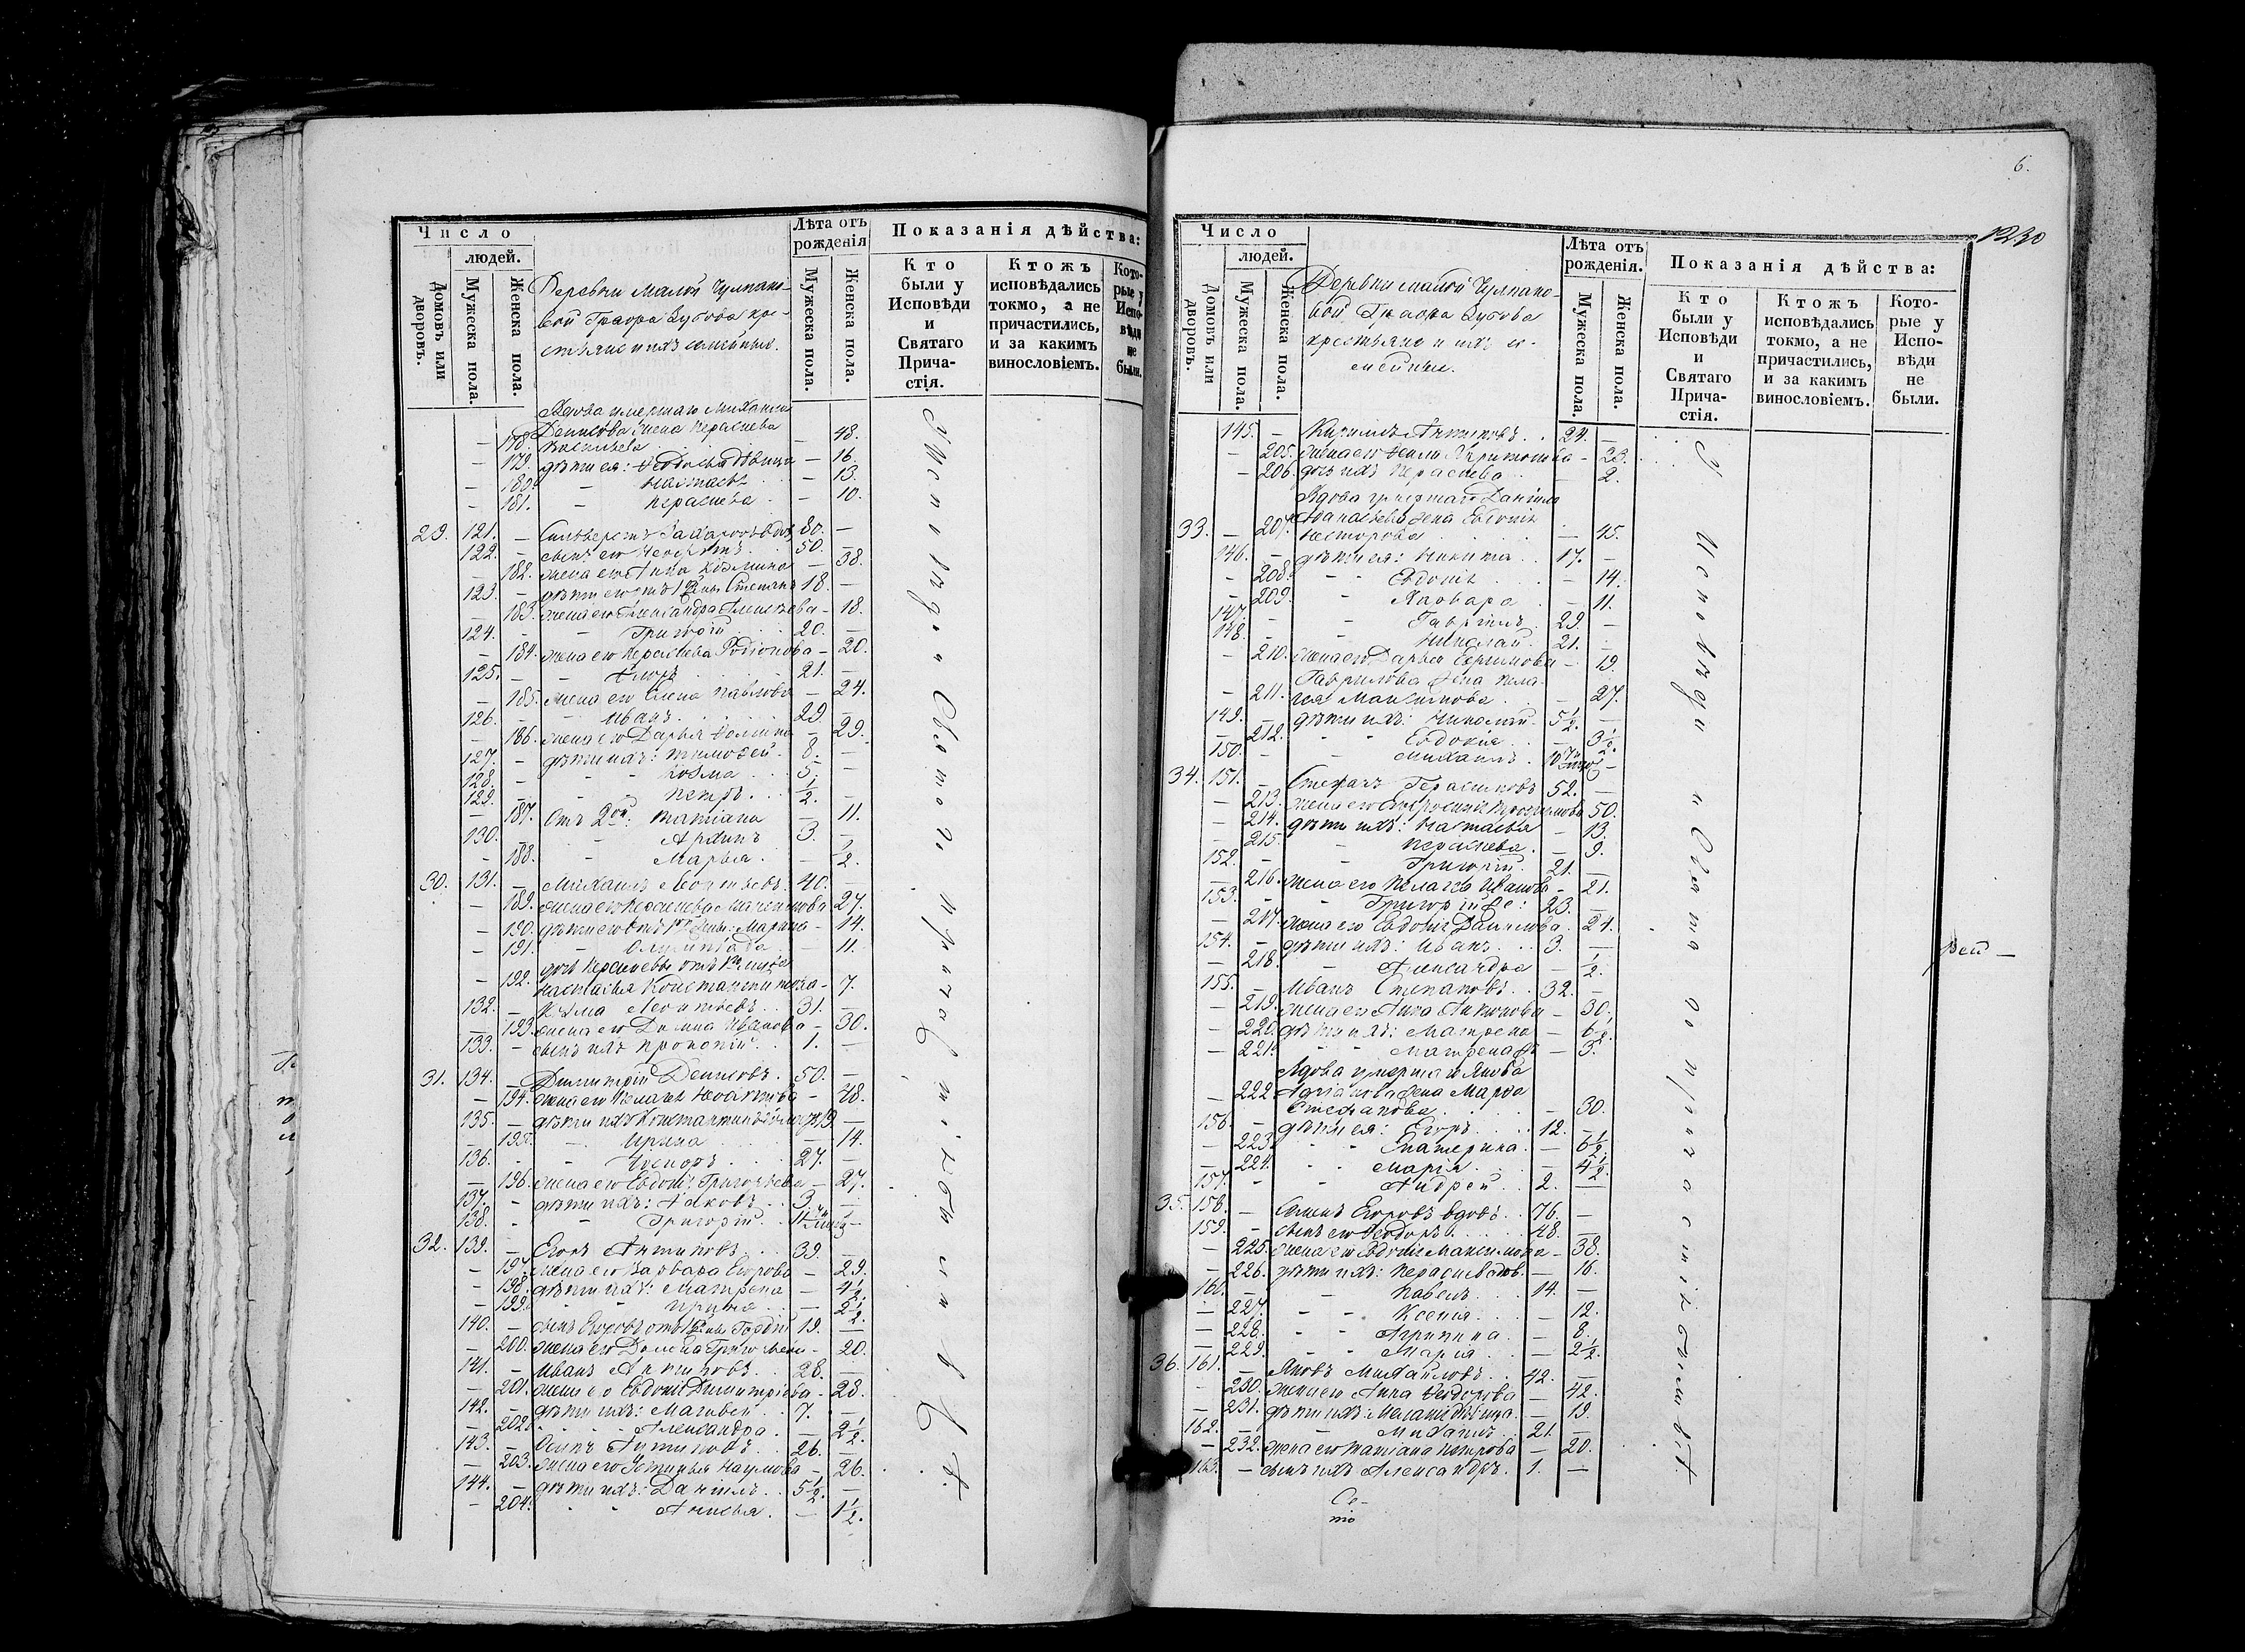 Число
людей.
Домовъ или дворовъ.
Мужеска пола.
Женска пола.
Деревни Малой Чулпано-
вой Графа Зубова кре-
стьяне и ихъ семейные.
Лѣта отъ
рожденія
Мужеска пола.
Женска пола.
Показанія дѣйства:
Кто
были у
Исповѣди
и
Святаго
Прича-
стія.
Ктожъ
исповѣдались
токмо, а не
причастились,
и за какимъ
винословіемъ.
Кото-
рые у
Испо-
вѣди
не
были.
Вдова умершаго Михаила
Денисова жена Параскева
— 178. Васильева — 48.
— 179. дѣти ея: Ѳедосья дѣвица — 16.
— 180. — Настасья — 13.
— 181. — Параскева — 10.
29. 121. — Сильверстъ Захаровъ вдовъ 80. —
122. — сынъ его 50. —
— 182. жена его Анна Козмина — 38.
123. — дѣти его отъ 1й жены Степанъ 18. —
— 183. жена его Александра Алексѣева — 18.
124. — Григорій 20. —
— 184. жена его Параскева Родіонова — 20.
125. — 21. —
— 185. жена его Елена Павлова — 24.
126. — Иванъ 29. —
— 186. жена его Дарья — 29.
127. — дѣти ихъ: Тимоѳей 8. —
128. — Козма 5. —
129. — Петръ ½. —
— 187. Отъ 2ой: Татіана — 11.
130. — Архипъ 3. —
— 188. — Марья — ½.
30. 131. — Михаилъ Леонтьевъ 40. —
— 189. жена его Параскева — 27.
— 190. дѣти его отъ 1й жены: Марина — 14.
— 191. — Олимпіада — 11.
дочь Параскевы отъ 1го мужа
— 192. Настасья Константинова — 7.
132. — Козма Леонтьевъ 31. —
— 193. жена его Домна Иванова — 30.
133. — сынъ ихъ Прокопій 1. —
31. 134. — Димитрій Денисовъ 50. —
— 194. жена его Пелагея — 48.
135. — дѣти ихъ Константинъ 19. —
— 195. — Ирина — 14.
136. — 27. —
— 196. жена его Евдокія Григорьева — 27.
137. — дѣти ихъ: Яковъ 3. —
138. — Григорій
32. 139. — Егоръ Антиповъ 39. —
— 197. жена его Варвара Егорова — 29.
— 198. дѣти ихъ: Матрена — 4½.
— 199. — Ирина — 2½.
140. — сынъ Егоровъ отъ 1й жены Гордѣй 19. —
— 200. жена его — 20.
141. — Иванъ Антиповъ 28. —
— 201. жена его Евдокія Димитріева — 28.
142. — дѣти ихъ: Матвей 7. —
— 202. — Александра — 2½.
143. — Осипъ Антиповъ 26. —
— 203. жена его Устинья Наумова — 26.
144. — дѣти ихъ: Данилъ 5½. —
— 204. — Анисья — 1½.
У Исповѣди и Святаго Причастія были всѣ.
6.
1230
Число
людей.
Домовъ или дворовъ.
Мужеска пола.
Женска пола.
Деревни Малой Чулпано-
вой Графа Зубова
крестьяне и ихъ се-
мейные.
Лѣта отъ
рожденія.
Мужеска пола.
Женска пола.
Показанія дѣйства:
Кто
были у
Исповѣди
и
Святаго
Прича-
стія.
Ктожъ
исповѣдались
токмо, а не
причастились,
и за какимъ
винословіемъ.
Кото-
рые у
Испо-
вѣди
не
были.
145. — Кирилъ Антиповъ 24. —
— 205. жена его — 23.
— 206. дочь ихъ Параскева — 2.
Вдова умершаго Данила
Аѳанасьева жена Евдокія
33. — 207. Несторова — 45.
146. — дѣти ея: Никита 17. —
— 208. — Евдокія — 14.
— 209. — Варвара — 11.
147. — Гаврилъ 29. —
148. — Николай 21. —
— 210. жена его Дарья — 19.
Гаврилова жена Пела-
— 211. гея Максимова — 27.
149. — дѣти ихъ: Николай 5½. —
— 212. — Евдокія — 3½.
150. — Михаилъ
34. 151. — Стефанъ Герасимовъ 52. —
— 213. жена его — 50.
— 214. дѣти ихъ: Настасья — 13.
— 215. — Параскева — 9.
152. — Григорій 21. —
— 216. жена его Пелагея Иванова — 21.
153. — Григорій 23. —
— 217. жена его Евдокія Данилова — 24.
154. — дѣти ихъ: Иванъ 3. —
— 218. — Александра — ½.
155. — Иванъ Степановъ 32. —
— 219. жена его Анна — 30.
— 220. дѣти ихъ: Матрена — 6½.
— 221. — Матрена — 3.
Вдова умершаго Якова
— 222. жена Марѳа
Стефанова — 30.
156. — дѣти ея: Егоръ 12. —
— 223. — Екатерина — 6½.
— 224. — Марія — 4½.
157. — Андрей 2. —
35. 158. — Егоровъ вдовъ 76. —
159. — сынъ его Ѳеодоръ 48. —
— 225. жена его Евдокія Максимова — 38.
— 226. дѣти ихъ: Параскева — 16.
160. — Павелъ 14. —
— 227. — Ксенія — 12.
— 228. — Агрипина — 8.
— 229. — Марія — 2½.
36. 161. — Яковъ Михайловъ 42. —
— 230. жена его Анна Ѳеодорова — 42.
— 231. дѣти ихъ: Меланія дѣвица — 19.
162. — Михаилъ 21. —
— 232. жена его Татіана Петрова — 20.
163. — сынъ ихъ Александръ 1. —
У Исповѣди и Святаго Причастія были всѣ.
рей —
Се-
ло